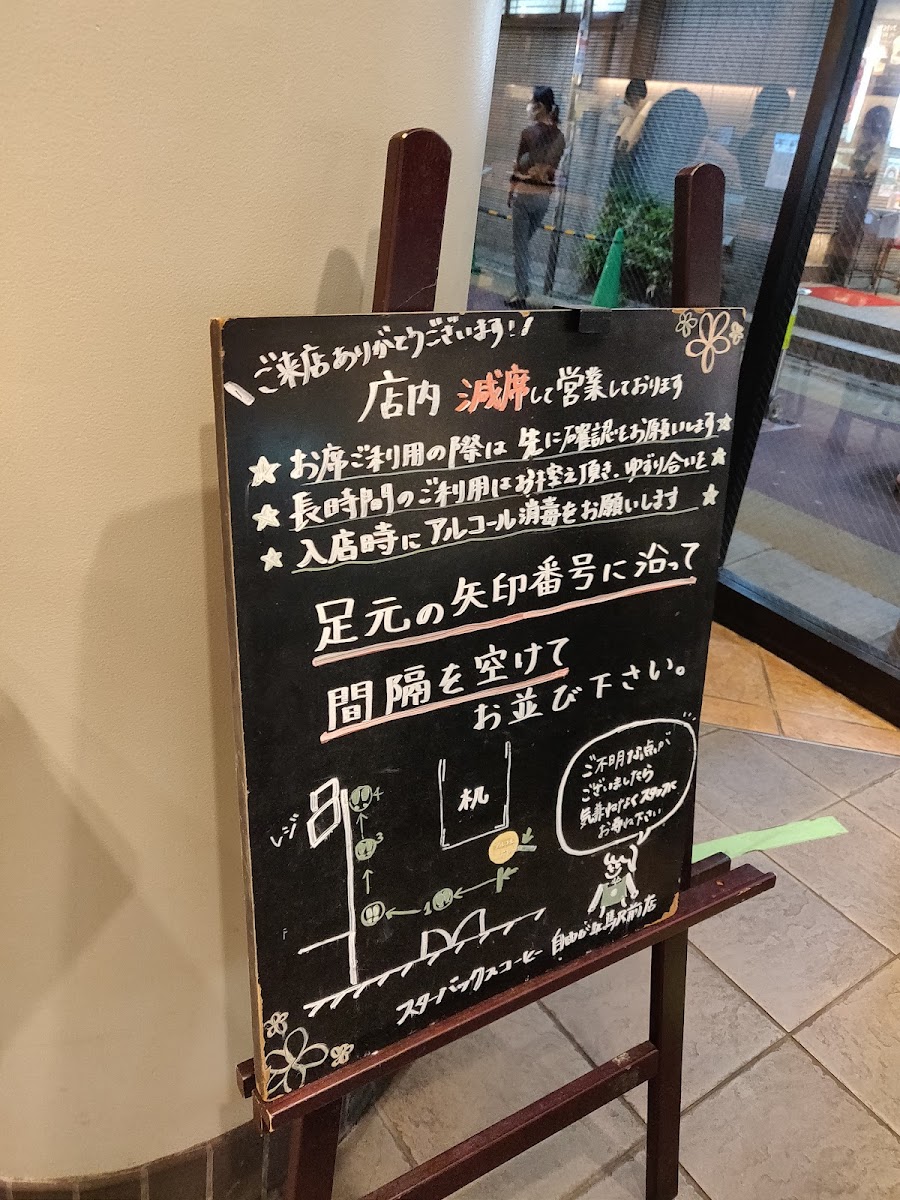 ご来店ありがとうございます!!
店内 減席して営業しております
★ お席ご利用の際は 先に確認をお願いします ★
★ 長時間のご利用はお控え頂き、ゆずり合いを ★
★ 入店時にアルコール消毒をお願いします ★
足元の矢印番号に沿って
間隔を空けて
お並び下さい。
レジ
4
3
1
机
ご不明な点が
ございましたら
気兼ねなくスタッフに
お尋ね下さい
スターバックスコーヒー 自由が丘駅前店